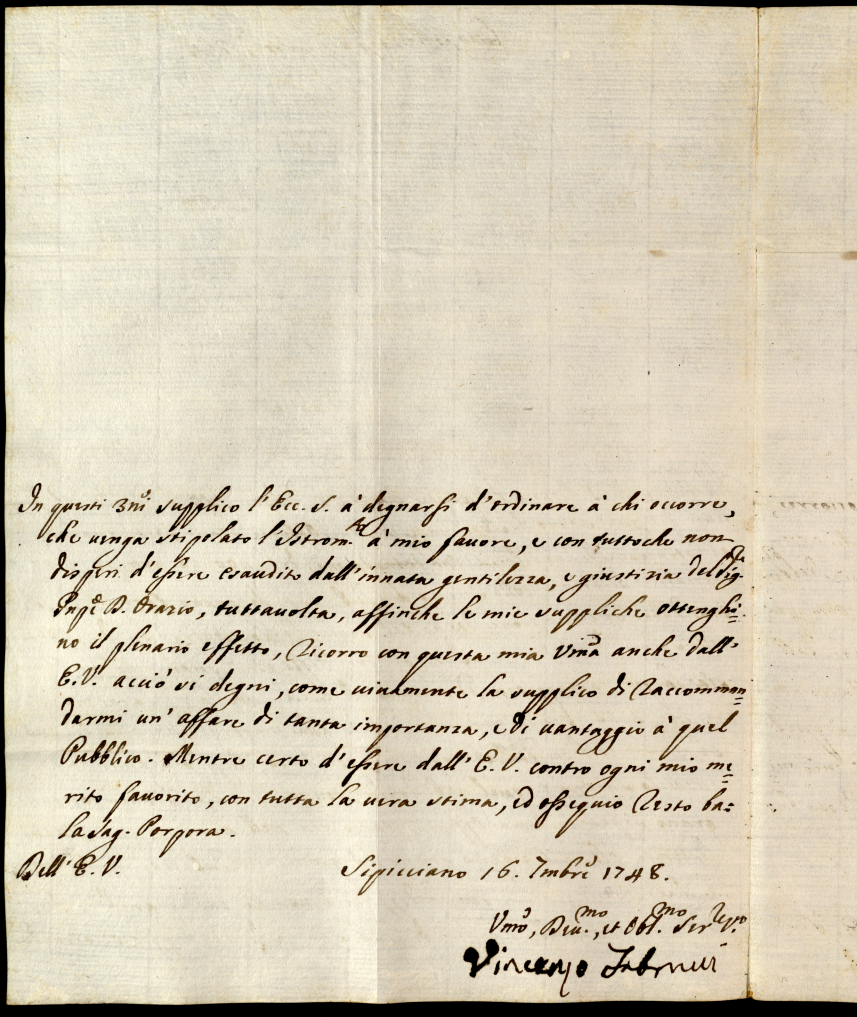 In questi 3ni supplico l'Ecc. S. à degnarsi d'ordinare à chi occorre,
che venga stipolato l'Istrom.to à mio favore, e con tuttoche non
disperi d'essere esaudito dall'innata gentilezza, e giustizia del Sig.
D. Orazio, tuttavolta, affinche le mie suppliche ottenghi=
no il plenario effetto, Ricorro con questa mia Vma anche dall'
E.V. acciò si degni, come vivamente la supplico di Raccomman=
darmi un' affare di tanta importanza, e di vantaggio à quel
Pubblico. Mentre certo d'essere dall' E. V. contro ogni mio me=
rito favorito, con tutta la vera stima, ed ossequio Resto ba:
la Sag. Porpora.
Dell' E. V.
Sipicciano 16. 7mbre 1748.
Vmo, Dev.mo, et Obl.mo Ser.re V.o
Vincenzo